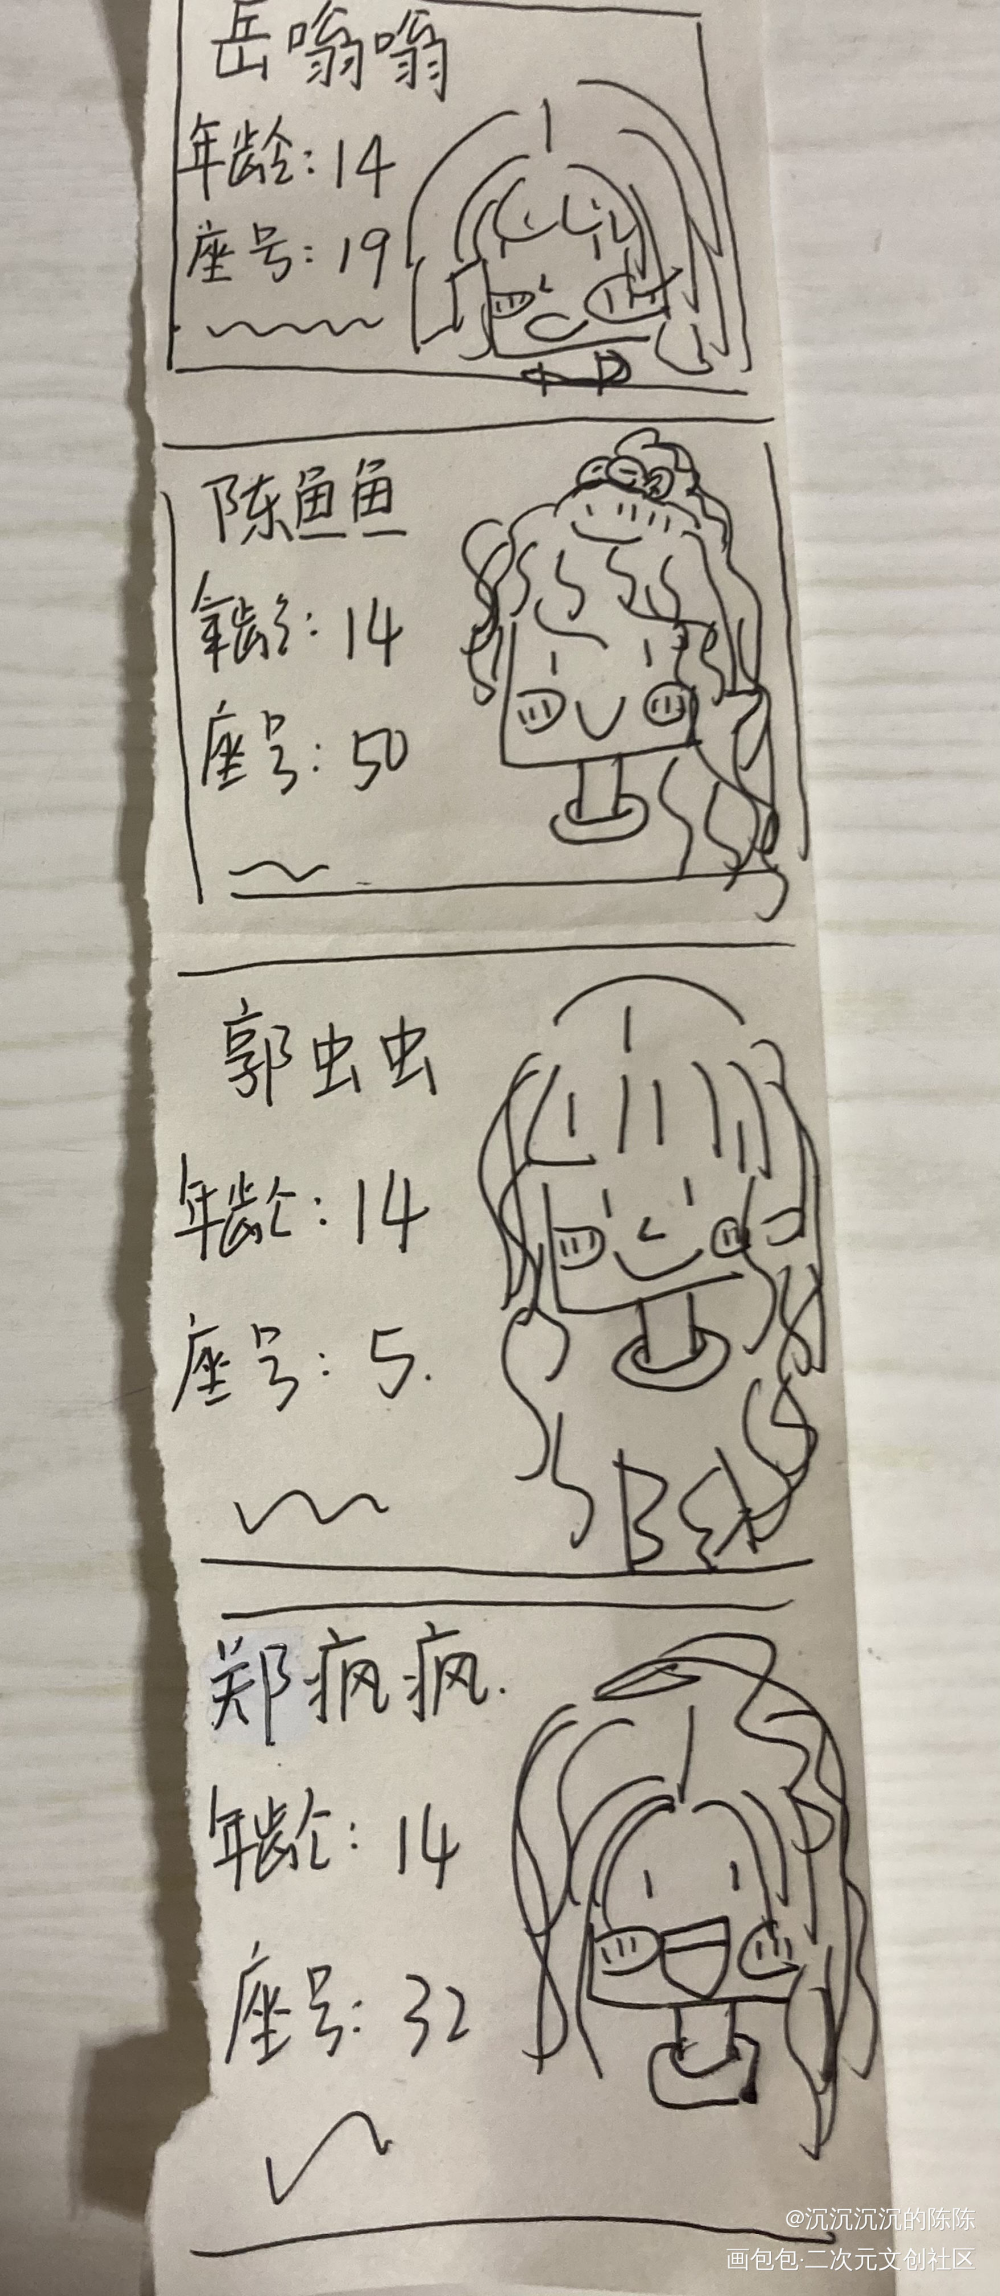 岳嗡嗡
年龄:14
座号:19
陈鱼鱼
年龄:14
座号:50
郭虫虫
年龄:14
座号:5.
郑疯疯.
年龄:14
座号:32
@沉沉沉沉的陈陈
画包包·二次元文创社区